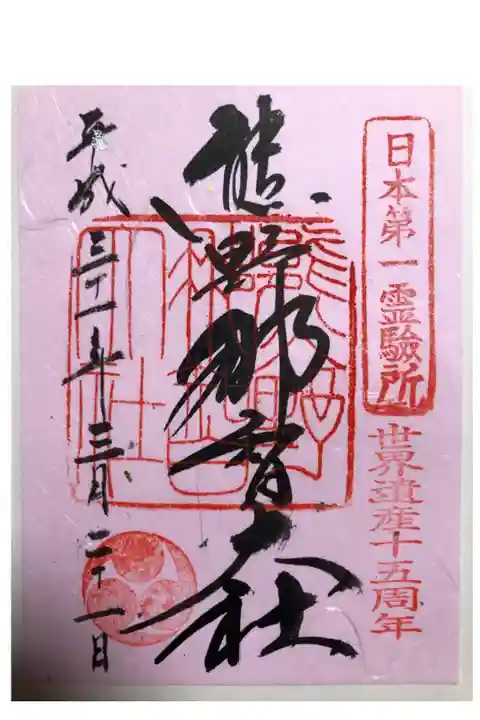 日本第一霊験所
世界遺産十五周年
熊野那智大社
平成三十一年三月二十一日